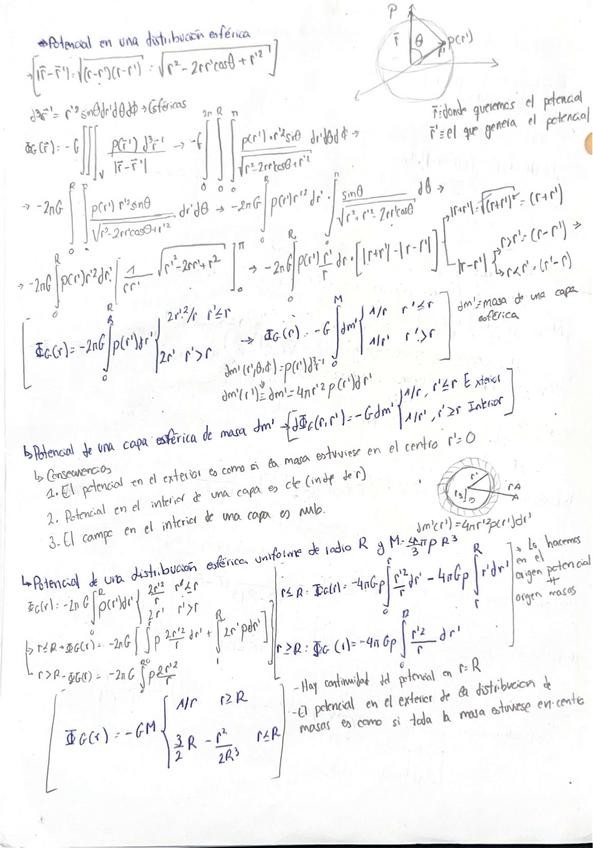 Potencial en una distribución esférica
→ [|r̄-r̄'| = √(r-r')(r-r') = √r²-2rr'cosθ+r'²]
P
r̄
θ
ρ(r')
r̄'
d³r̄' = r'² sinθdr'dθdϕ → Esféricas
r̄ = donde queremos el potencial
r̄' = el que genera el potencial
Φ_G(r̄) = -G ∭_V ρ(r̄') d³r̄' / |r̄-r̄'| → -G ∫₀^2π ∫₀^R ∫₀^π ρ(r')·r'² sinθ / √r²-2rr'cosθ+r'² dr'dθdϕ →
→ -2πG ∫₀^R ∫₀^π ρ(r') r'² sinθ / √r²-2rr'cosθ+r'² dr'dθ → -2πG ∫₀^R ρ(r') r'² dr' · ∫₀^π sinθ / √r²+r'²-2rr'cosθ dθ →
→ -2πG ∫₀^R ρ(r') r'² dr' [1/rr' √r'²-2rr'+r²]₀^π → -2πG ∫₀^R ρ(r') r'/r dr' · [|r+r'|-|r-r'|] { |r+r'| = √(r+r')² = (r+r')
|r-r'| { r>r' = (r-r') →
r<r' = (r'-r)
[Φ_G(r) = -2πG ∫₀^R ρ(r')dr' { 2r'²/r r'≤r
2r' r'>r
→ Φ_G(r) = -G ∫₀^M dm' { 1/r r'≤r
1/r' r'>r ]
dm' = masa de una capa
esférica
dm'(r',θ,ϕ) = ρ(r')d³r̄'
dm'(r') = dm' = 4πr'² ρ(r')dr'
↳ Potencial de una capa esférica de masa dm' → [dΦ_G(r,r') = -Gdm' { 1/r, r'≤r Exterior
1/r', r'>r Interior ]
↳ Consecuencias
1. El potencial en el exterior es como si la masa estuviese en el centro r'=0
2. Potencial en el interior de una capa es cte (indp de r)
3. El campo en el interior de una capa es nulo.
r'
rB
B
rA
A
dm'(r') = 4πr'²ρ(r')dr'
↳ Potencial de una distribución esférica uniforme de radio R y M = 4π/3 ρR³
Φ_G(r) = -2πG ∫₀^R ρ(r')dr' { 2r'²/r r'≤r
2r' r'>r
↳ r≤R → Φ_G(r) = -2πG [∫₀^r ρ 2r'²/r dr' + ∫_r^R 2r'ρdr']
r>R → Φ_G(r) = -2πG ∫₀^R ρ 2r'²/r
r≤R: Φ_G(r) = -4πGρ ∫₀^r r'²/r dr' - 4πGρ ∫_r^R r'dr'
r≥R: Φ_G(r) = -4πGρ ∫₀^R r'²/r dr'
→ Lo hacemos
en el
origen potencial
+
origen masas
[Φ_G(r) = -GM { 1/r r≥R
3/2 R - r²/2R³ r≤R ]
- Hay continuidad del potencial en r=R
- El potencial en el exterior de la distribucion de
masas es como si toda la masa estuviese en centro